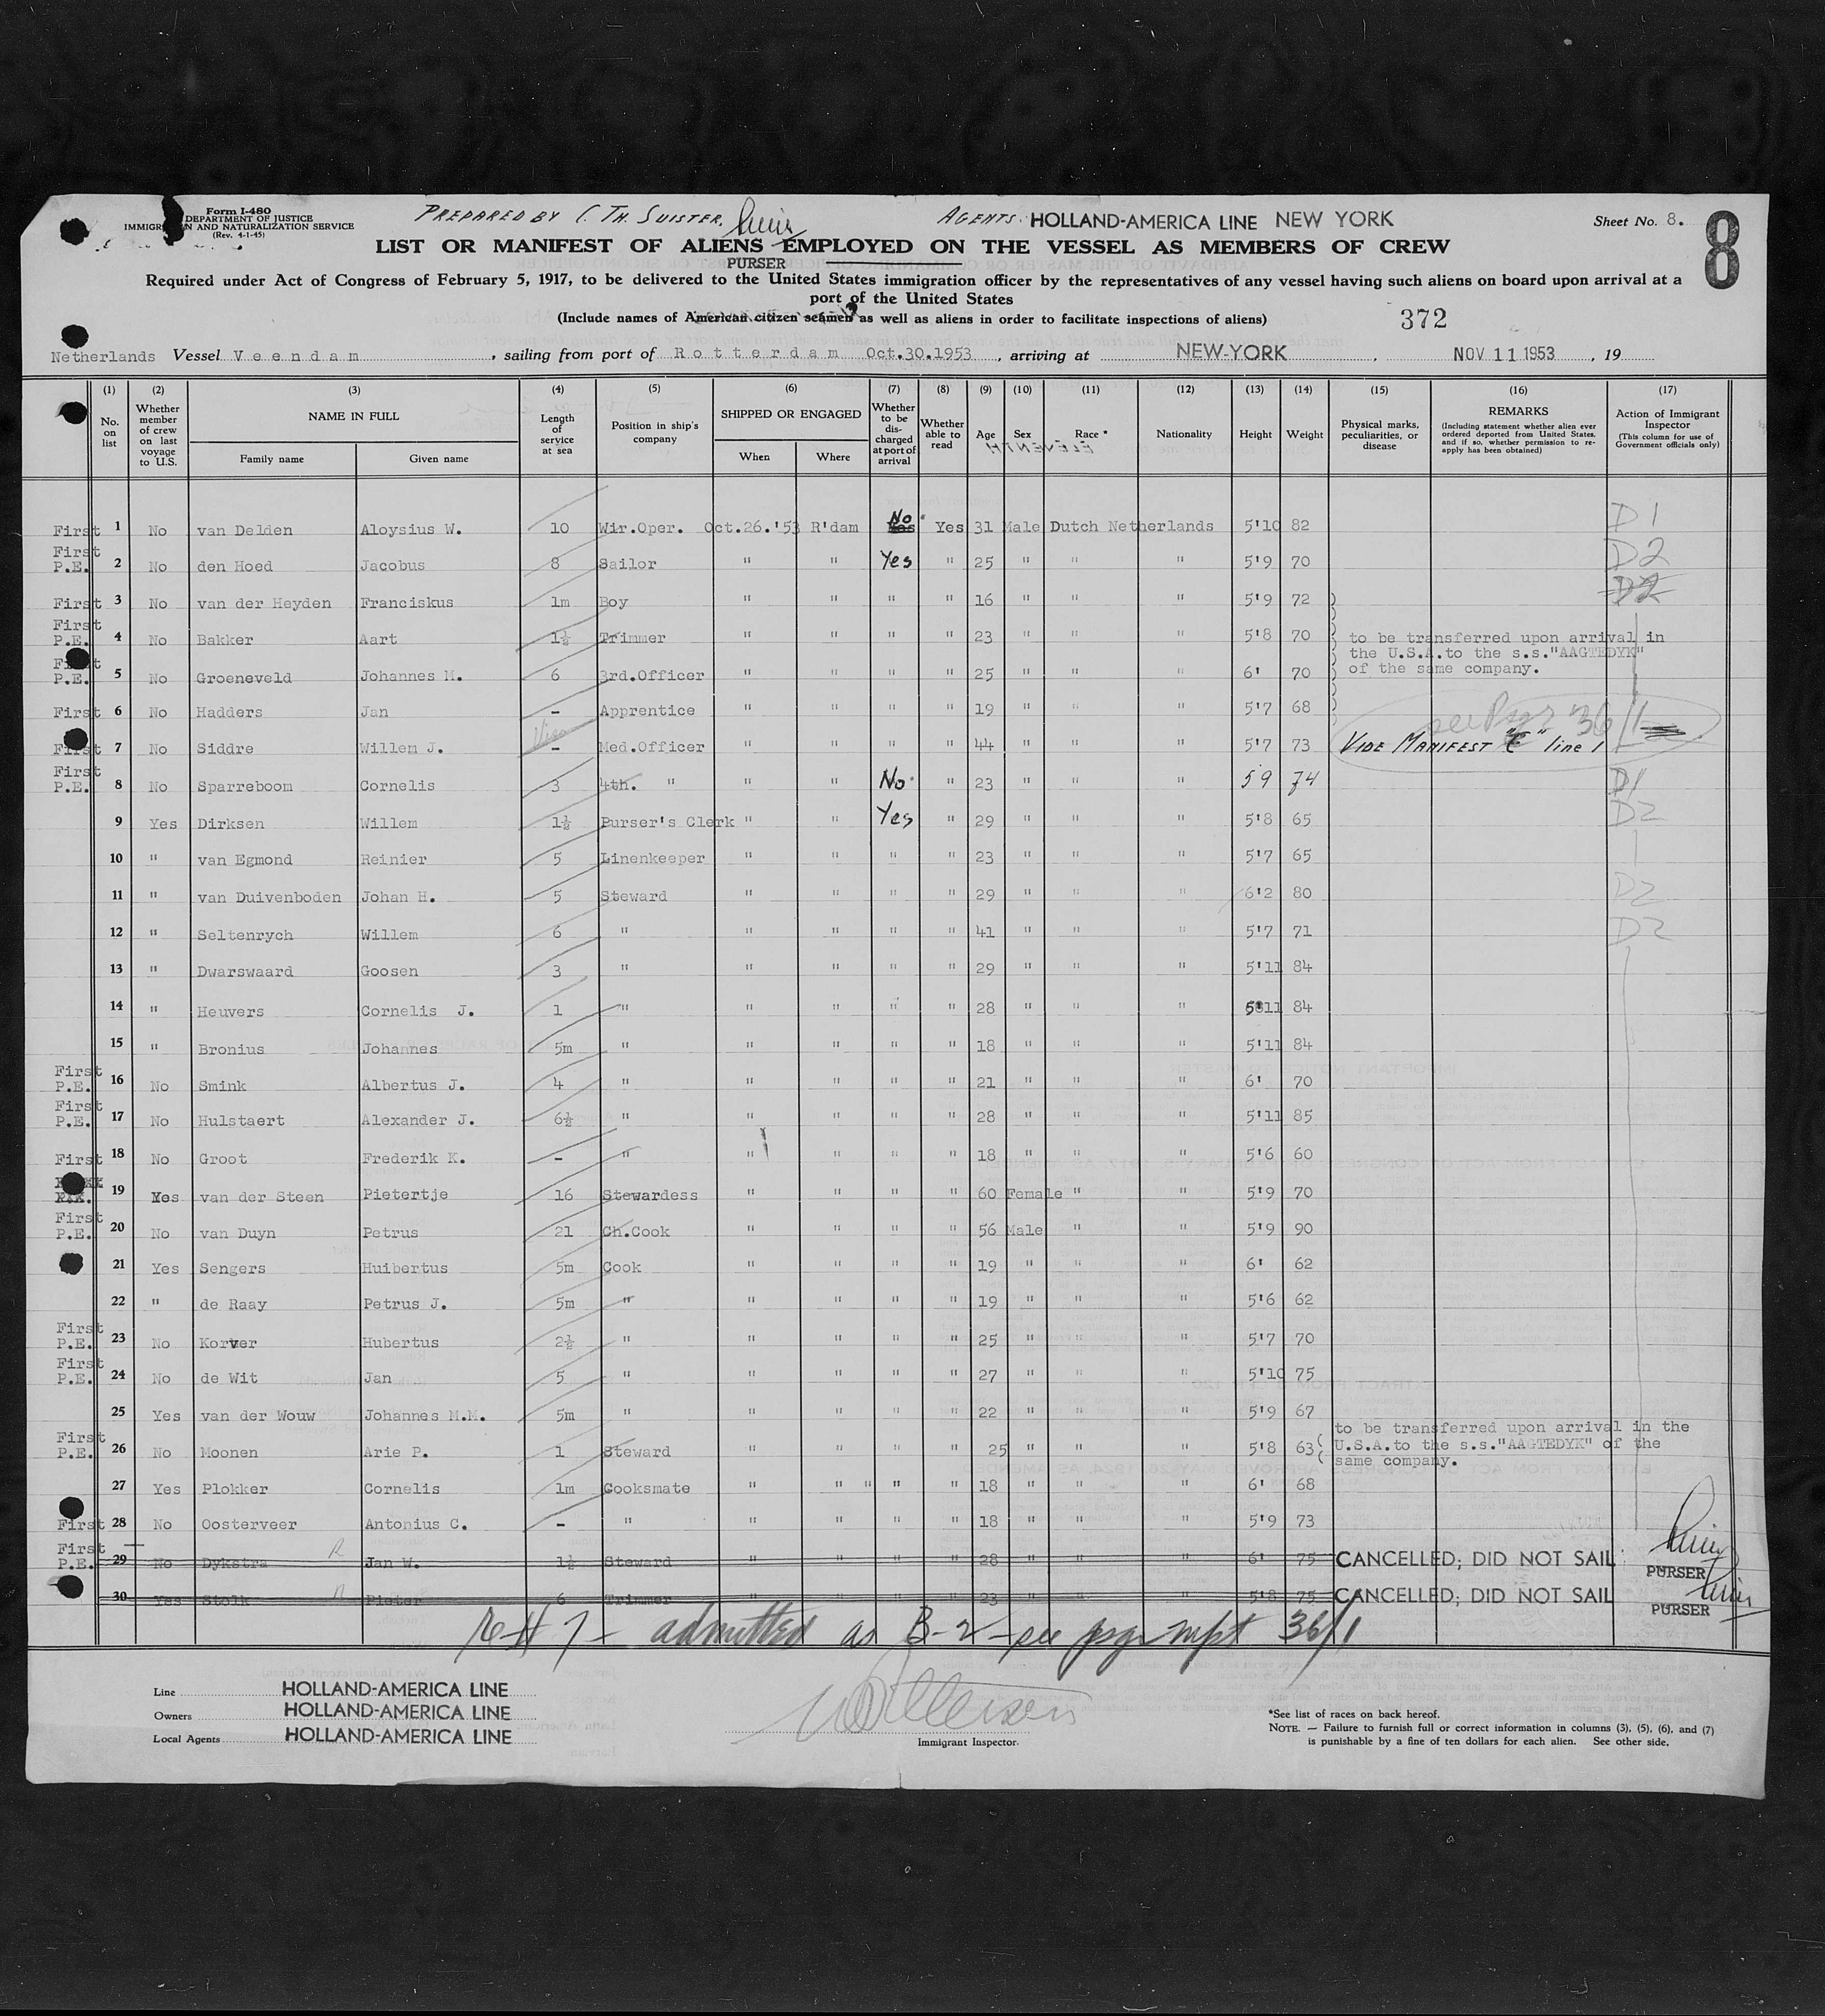 Form I-480
DEPARTMENT OF JUSTICE
IMMIGRATION AND NATURALIZATION SERVICE
(Rev. 4-1-45)
PREPARED BY C. TH. SUISTER.
PURSER
AGENTS: HOLLAND-AMERICA LINE NEW YORK
Sheet No. 8.
8
LIST OR MANIFEST OF ALIENS EMPLOYED ON THE VESSEL AS MEMBERS OF CREW
Required under Act of Congress of February 5, 1917, to be delivered to the United States immigration officer by the representatives of any vessel having such aliens on board upon arrival at a
port of the United States
(Include names of American citizen seamen as well as aliens in order to facilitate inspections of aliens)
372
Netherlands Vessel Veendam, sailing from port of Rotterdam Oct.30.1953, arriving at NEW-YORK, NOV 11 1953, 19
(1) No. on list
(2) Whether member of crew on last voyage to U.S.
(3) NAME IN FULL Family name Given name
(4) Length of service at sea
(5) Position in ship's company
(6) SHIPPED OR ENGAGED When Where
(7) Whether to be discharged at port of arrival
(8) Whether able to read
(9) Age
(10) Sex
(11) Race *
(12) Nationality
(13) Height
(14) Weight
(15) Physical marks, peculiarities, or disease
(16) REMARKS (Including statement whether alien ever ordered deported from United States, and if so, whether permission to re-apply has been obtained)
(17) Action of Immigrant Inspector (This column for use of Government officials only)
First 1 No van Delden Aloysius W. 10 Wir.Oper. Oct.26.'53 R'dam No Yes 31 Male Dutch Netherlands 5'10 82 D1
First P.E. 2 No den Hoed Jacobus 8 Sailor " " Yes " 25 " " " 5'9 70 D2
First 3 No van der Heyden Franciskus 1m Boy " " " " 16 " " " 5'9 72 D2
First P.E. 4 No Bakker Aart 1½ Trimmer " " " " 23 " " " 5'8 70
First P.E. 5 No Groeneveld Johannes M. 6 3rd.Officer " " " " 25 " " " 6' 70
to be transferred upon arrival in
the U.S.A.to the s.s."AAGTEDYK"
of the same company.
First 6 No Hadders Jan - Apprentice " " " " 19 " " " 5'7 68
see Psgr 36/1
First 7 No Siddre Willem J. Visa - Med.Officer " " " " 44 " " " 5'7 73 VIDE MANIFEST "C" line 1
First P.E. 8 No Sparreboom Cornelis 3 4th. " " " No " 23 " " " 5 9 74 D1
9 Yes Dirksen Willem 1½ Purser's Clerk " " Yes " 29 " " " 5'8 65 D2
10 " van Egmond Reinier 5 Linenkeeper " " " " 23 " " " 5'7 65
11 " van Duivenboden Johan H. 5 Steward " " " " 29 " " " 6'2 80 D2
12 " Seltenrych Willem 6 " " " " " 41 " " " 5'7 71 D2
13 " Dwarswaard Goosen 3 " " " " " 29 " " " 5'11 84
14 " Heuvers Cornelis J. 1 " " " " " 28 " " " 5'11 84
15 " Bronius Johannes 5m " " " " " 18 " " " 5'11 84
First P.E. 16 No Smink Albertus J. 4 " " " " " 21 " " " 6' 70
First P.E. 17 No Hulstaert Alexander J. 6½ " " " " " 28 " " " 5'11 85
First 18 No Groot Frederik K. - " " " " " 18 " " " 5'6 60
19 Yes van der Steen Pietertje 16 Stewardess " " " " 60 Female " " 5'9 70
First P.E. 20 No van Duyn Petrus 21 Ch.Cook " " " " 56 Male " " 5'9 90
21 Yes Sengers Huibertus 5m Cook " " " " 19 " " " 6' 62
22 " de Raay Petrus J. 5m " " " " " 19 " " " 5'6 62
First P.E. 23 No Korver Hubertus 2½ " " " " " 25 " " " 5'7 70
First P.E. 24 No de Wit Jan 5 " " " " " 27 " " " 5'10 75
25 Yes van der Wouw Johannes M.M. 5m " " " " " 22 " " " 5'9 67
First P.E. 26 No Moonen Arie P. 1 Steward " " " " 25 " " " 5'8 63
to be transferred upon arrival in the
U.S.A.to the s.s."AAGTEDYK" of the
same company.
27 Yes Plokker Cornelis 1m Cooksmate " " " " " 18 " " " 6' 68
First 28 No Oosterveer Antonius C. - " " " " " 18 " " " 5'9 73
First P.E. 29 No Dykstra Jan W. 1½ Steward " " " " 28 " " " 6' 75 CANCELLED; DID NOT SAIL PURSER
30 Yes Stolk Pieter 6 Trimmer " " " " 23 " " " 5'8 75 CANCELLED; DID NOT SAIL PURSER
admitted as B-2 - see psgr mfst 36/1
Line HOLLAND-AMERICA LINE
Owners HOLLAND-AMERICA LINE
Local Agents HOLLAND-AMERICA LINE
Immigrant Inspector.
*See list of races on back hereof.
NOTE. — Failure to furnish full or correct information in columns (3), (5), (6), and (7)
is punishable by a fine of ten dollars for each alien. See other side.